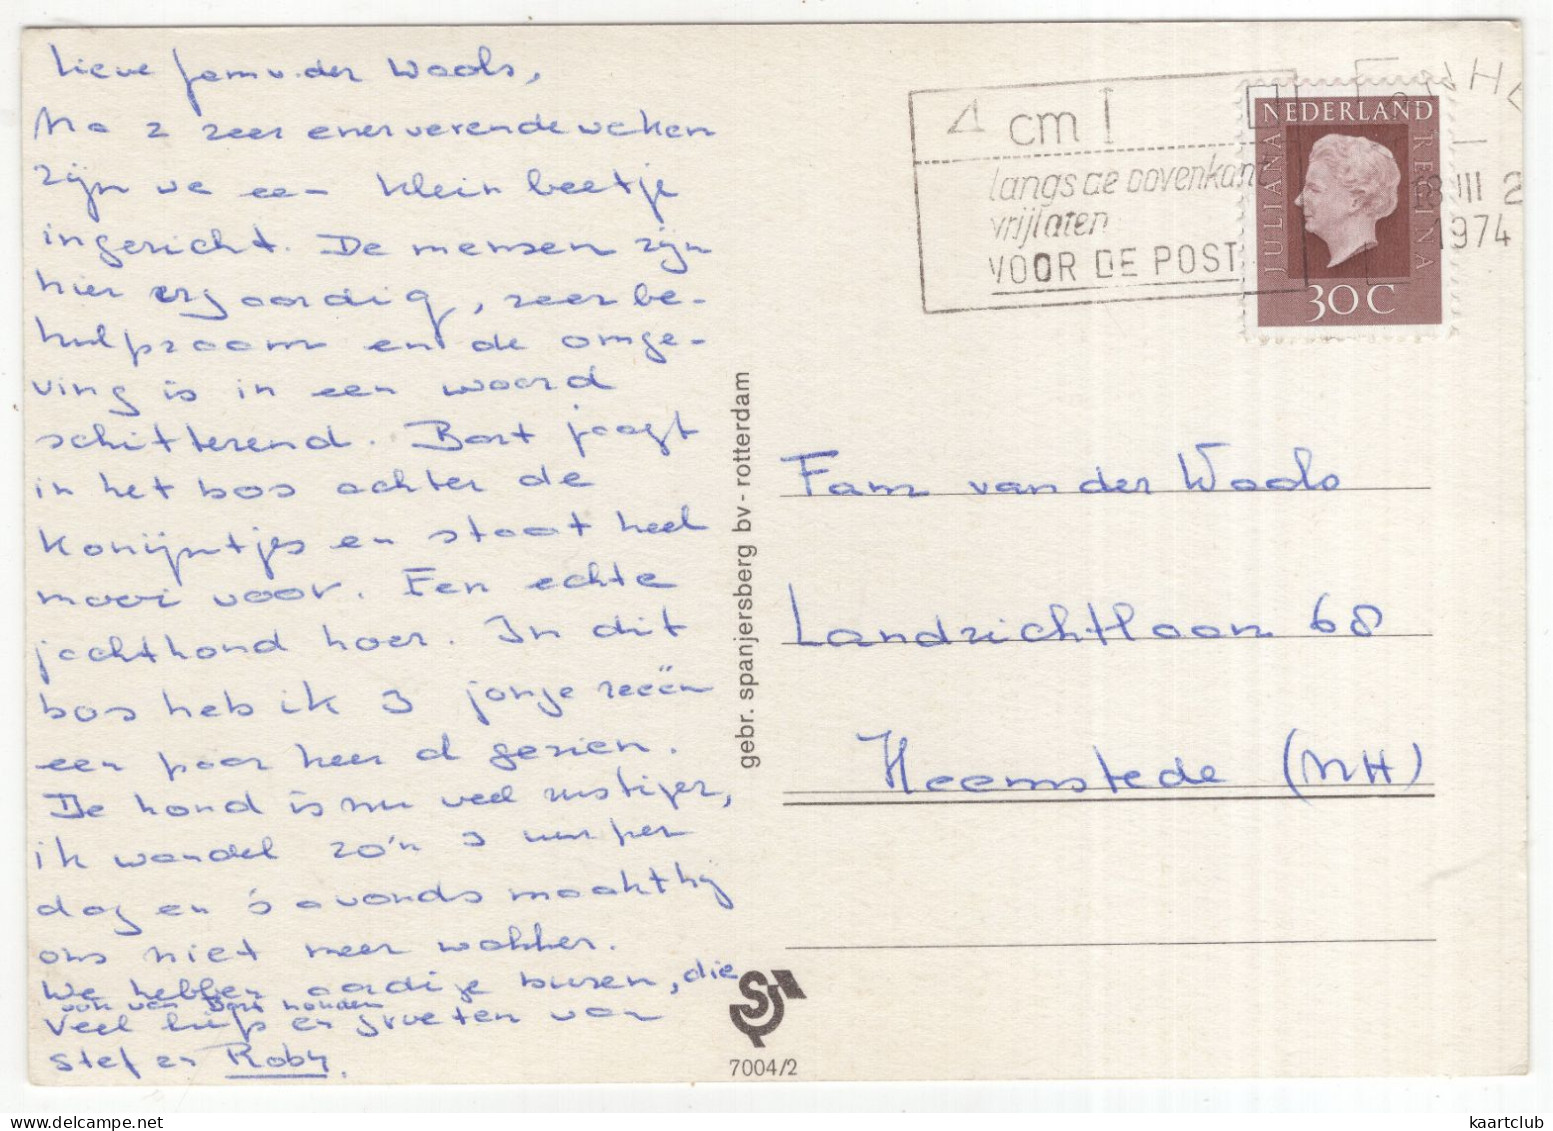 Lieve fam v. der Wools,
Na 2 zeer enerverende weken
zijn we een klein beetje
ingericht. De mensen zijn
hier erg aardig, zeer be-
hulpzaam en de omge-
ving is in een woord
schitterend. Bart jaagt
in het bos achter de
konijntjes en staat heel
mooi voor. Een echte
jachthond hoor. In dit
bos heb ik 3 jonge reeën
een paar keer al gezien.
De hond is nu veel rustiger,
ik wandel zo'n 3 uur per
dag en 's avonds maakt hij
ons niet meer wakker.
We hebben aardige buren, die
ook van Bart houden
Veel liefs en groeten van
Stef en Roby.
4 cm
langs de bovenkant
vrijlaten
VOOR DE POST
NEDERLAND
JULIANA
REGINA
30C
III 2
1974
gebr. spanjersberg bv - rotterdam
Fam van der Wools
Landzichtlaan 68
Heemstede (NH)
7004/2
kaartclub